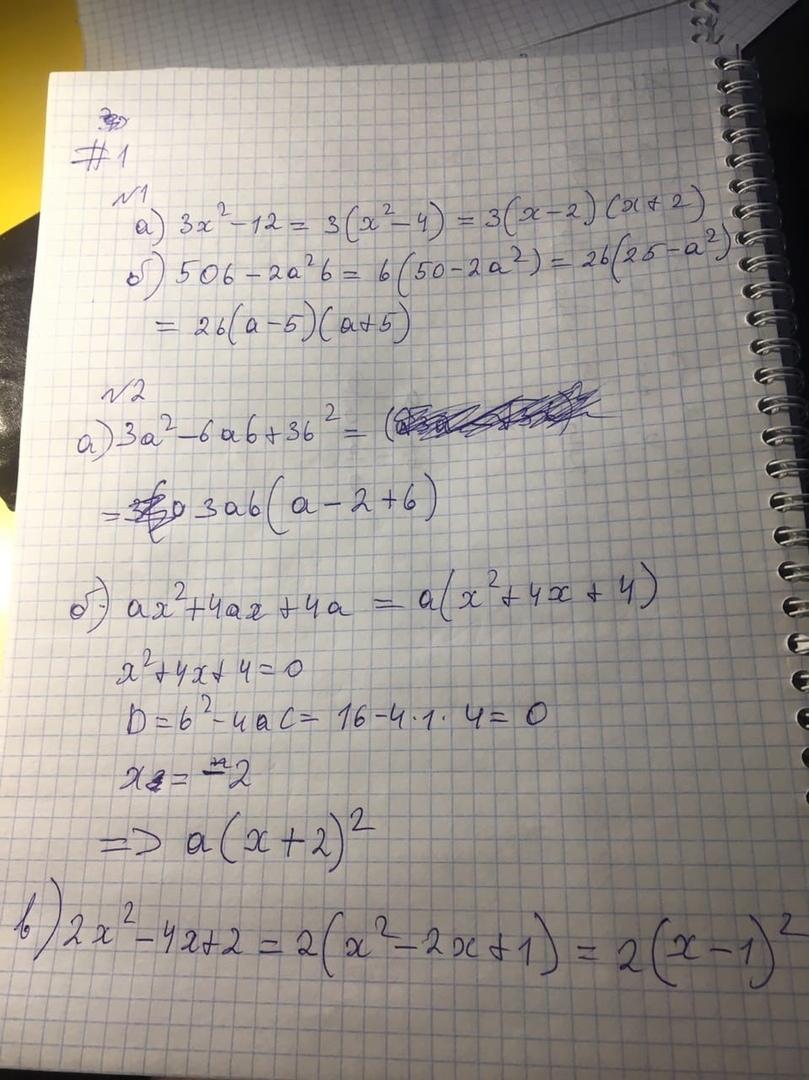 #1
№1
а) 3x²-12 = 3(x²-4) = 3(x-2)(x+2)
б) 50b - 2a²b = b(50-2a²) = 2b(25-a²)
= 2b(a-5)(a+5)
№2
а) 3a²-6ab+3b² = (
= 3ab(a-2+b)
б) ax²+4ax+4a = a(x²+4x+4)
x²+4x+4=0
D=b²-4ac= 16-4·1·4=0
x = -2
=> a(x+2)²
в) 2x²-4x+2 = 2(x²-2x+1) = 2(x-1)²